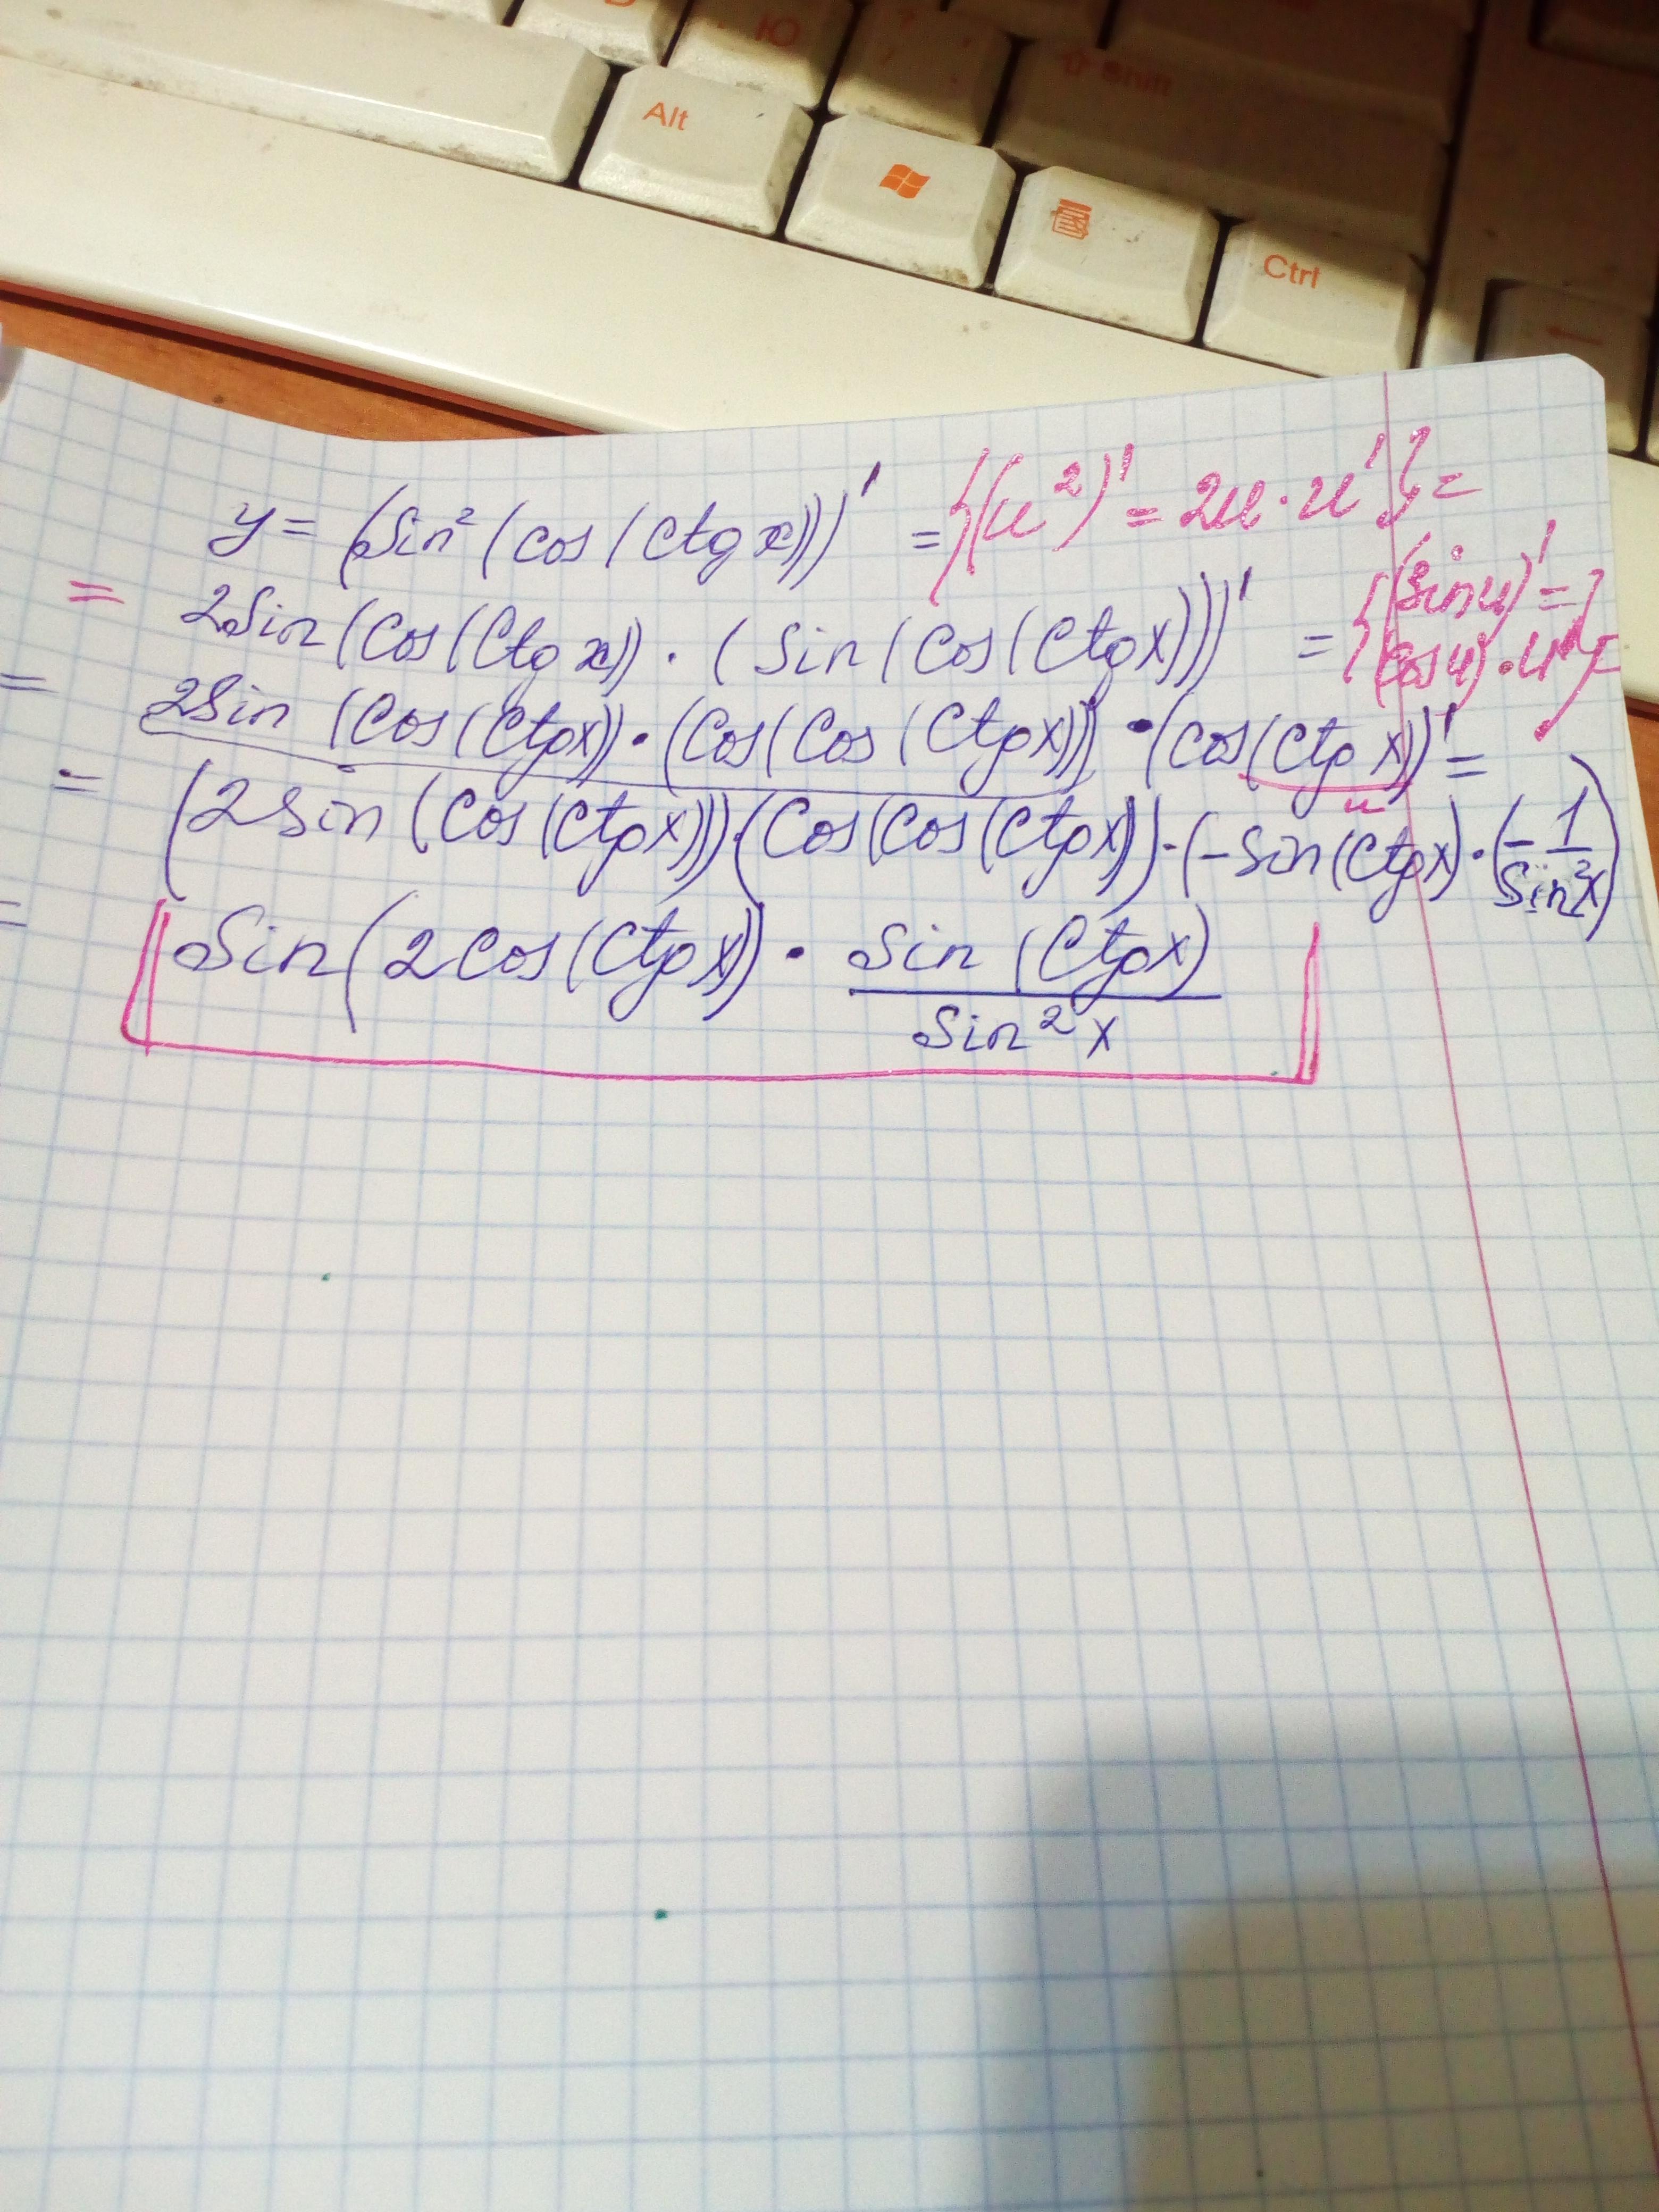 Ю
Alt
Shift
Ctrl
y = (Sin² (cos (Ctg x)))' = {(u²)' = 2u · u'} =
= 2Sin (Cos (Ctg x)) · (Sin (Cos (Ctg x)))' = {(Sin u)' = (Cos u) · u'} =
= 2Sin (Cos (Ctg x)) · (Cos (Cos (Ctg x))) · (Cos (Ctg x))' =
u
= (2Sin (Cos (Ctg x))) · (Cos (Cos (Ctg x))) · (-Sin (Ctg x) · (-1/Sin² x))
= Sin (2Cos (Ctg x)) · Sin (Ctg x)/Sin² x